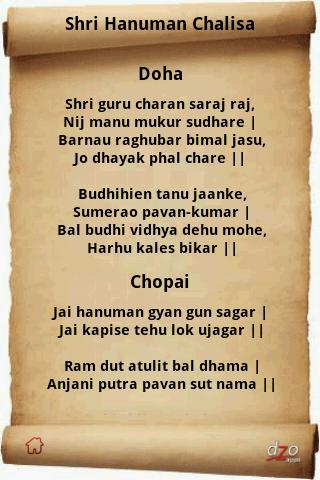 Shri Hanuman Chalisa
Doha
Shri guru charan saraj raj,
Nij manu mukur sudhare |
Barnau raghubar bimal jasu,
Jo dhayak phal chare ||
Budhihien tanu jaanke,
Sumerao pavan-kumar |
Bal budhi vidhya dehu mohe,
Harhu kales bikar ||
Chopai
Jai hanuman gyan gun sagar |
Jai kapise tehu lok ujagar ||
Ram dut atulit bal dhama |
Anjani putra pavan sut nama ||
dzo
apps